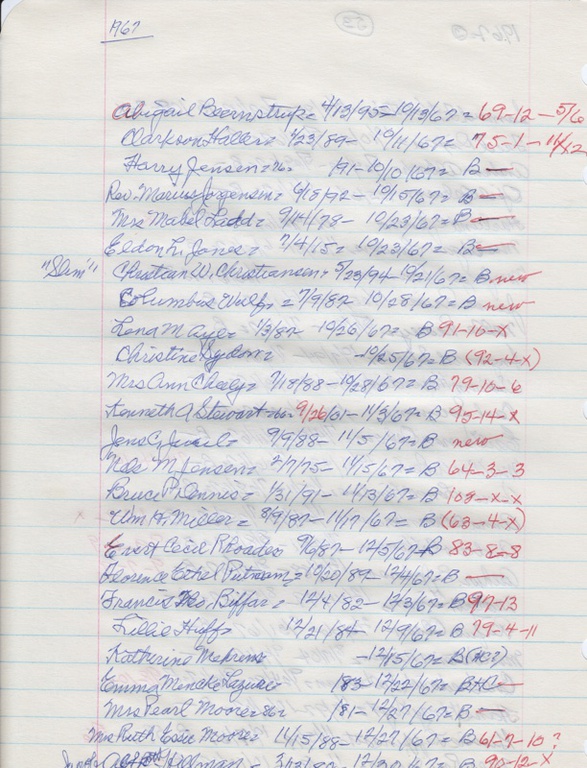 1967
53
Abigail Beernstrup = 4/13/95 - 10/13/67 = 69-12-5/6
Clarkson Haller = 4/23/89 - 10/11/67 = 75-1-11/12
Harry Jensen = /91 - 10/10/67 = B —
Rev. Marius Jorgensen = 6/18/92 - 10/15/67 = B —
Mrs Mabel Ladd = 9/14/78 - 10/23/67 = B —
Eldon L. Jones = 7/4/15 = 10/23/67 = B —
"Slim" Christian W. Christiansen = 5/23/94 - 10/21/67 = B new
Columbus Wulf = 7/9/82 10/28/67 = B new
Lena M. Aye = 1/3/82 - 10/26/67 = B 91-10-X
Christine = -10/25/67 = B (92-4-X)
Mrs Ann Cheely = 7/18/88 - 10/28/67 = B 79-10-6
Kenneth A Stewart = 9/26/61 - 11/3/67 = B 95-14-X
Jens C. Juul = 9/9/88 - 11/5/67 = B new
M. Jensen = 2/7/75 - 11/15/67 = B 64-3-3
Bruce P. Dennis = 1/31/91 - 11/13/67 = B 103-X-X
Wm H. Miller = 8/9/87 - 11/17/67 = B (63-4-X)
Ernst Cecil Rhoades 9/6/87 - 12/5/67 - B 83-8-8
Florence Ethel Putnam = 12/20/89 - 12/4/67 = B —
Francis Biffar = 12/4/82 - 12/3/67 = B 97-13
Lillie Huff = 12/21/84 - 12/9/67 = B 79-4-11
Katherine - 12/15/67 = B
Emma Mencke /83 - 12/22/67 = B+C —
Mrs Pearl Moore = /81 - 12/27/67 = B —
Mrs Ruth Essie Moore = 11/15/88 - 12/27/67 = B 61-7-10?
12/30/67 = B 90-12-X